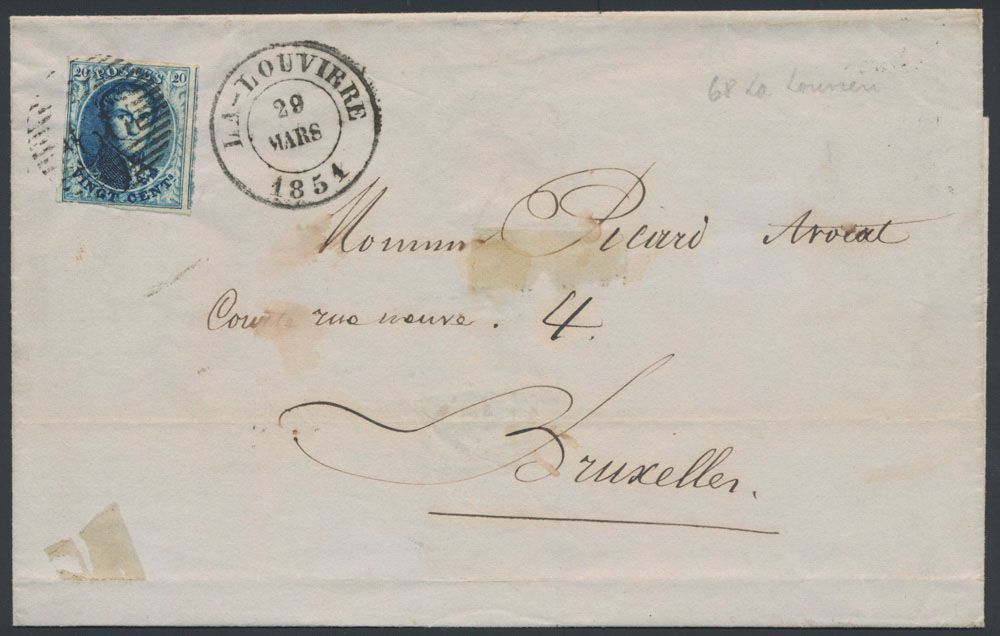 20 POSTES 20
VINGT CENTS.
LA-LOUVIERE
29
MARS
1851
68 La Louvieri
Monsieur Picard Avocat
Courte rue neuve. 4.
Bruxelles.